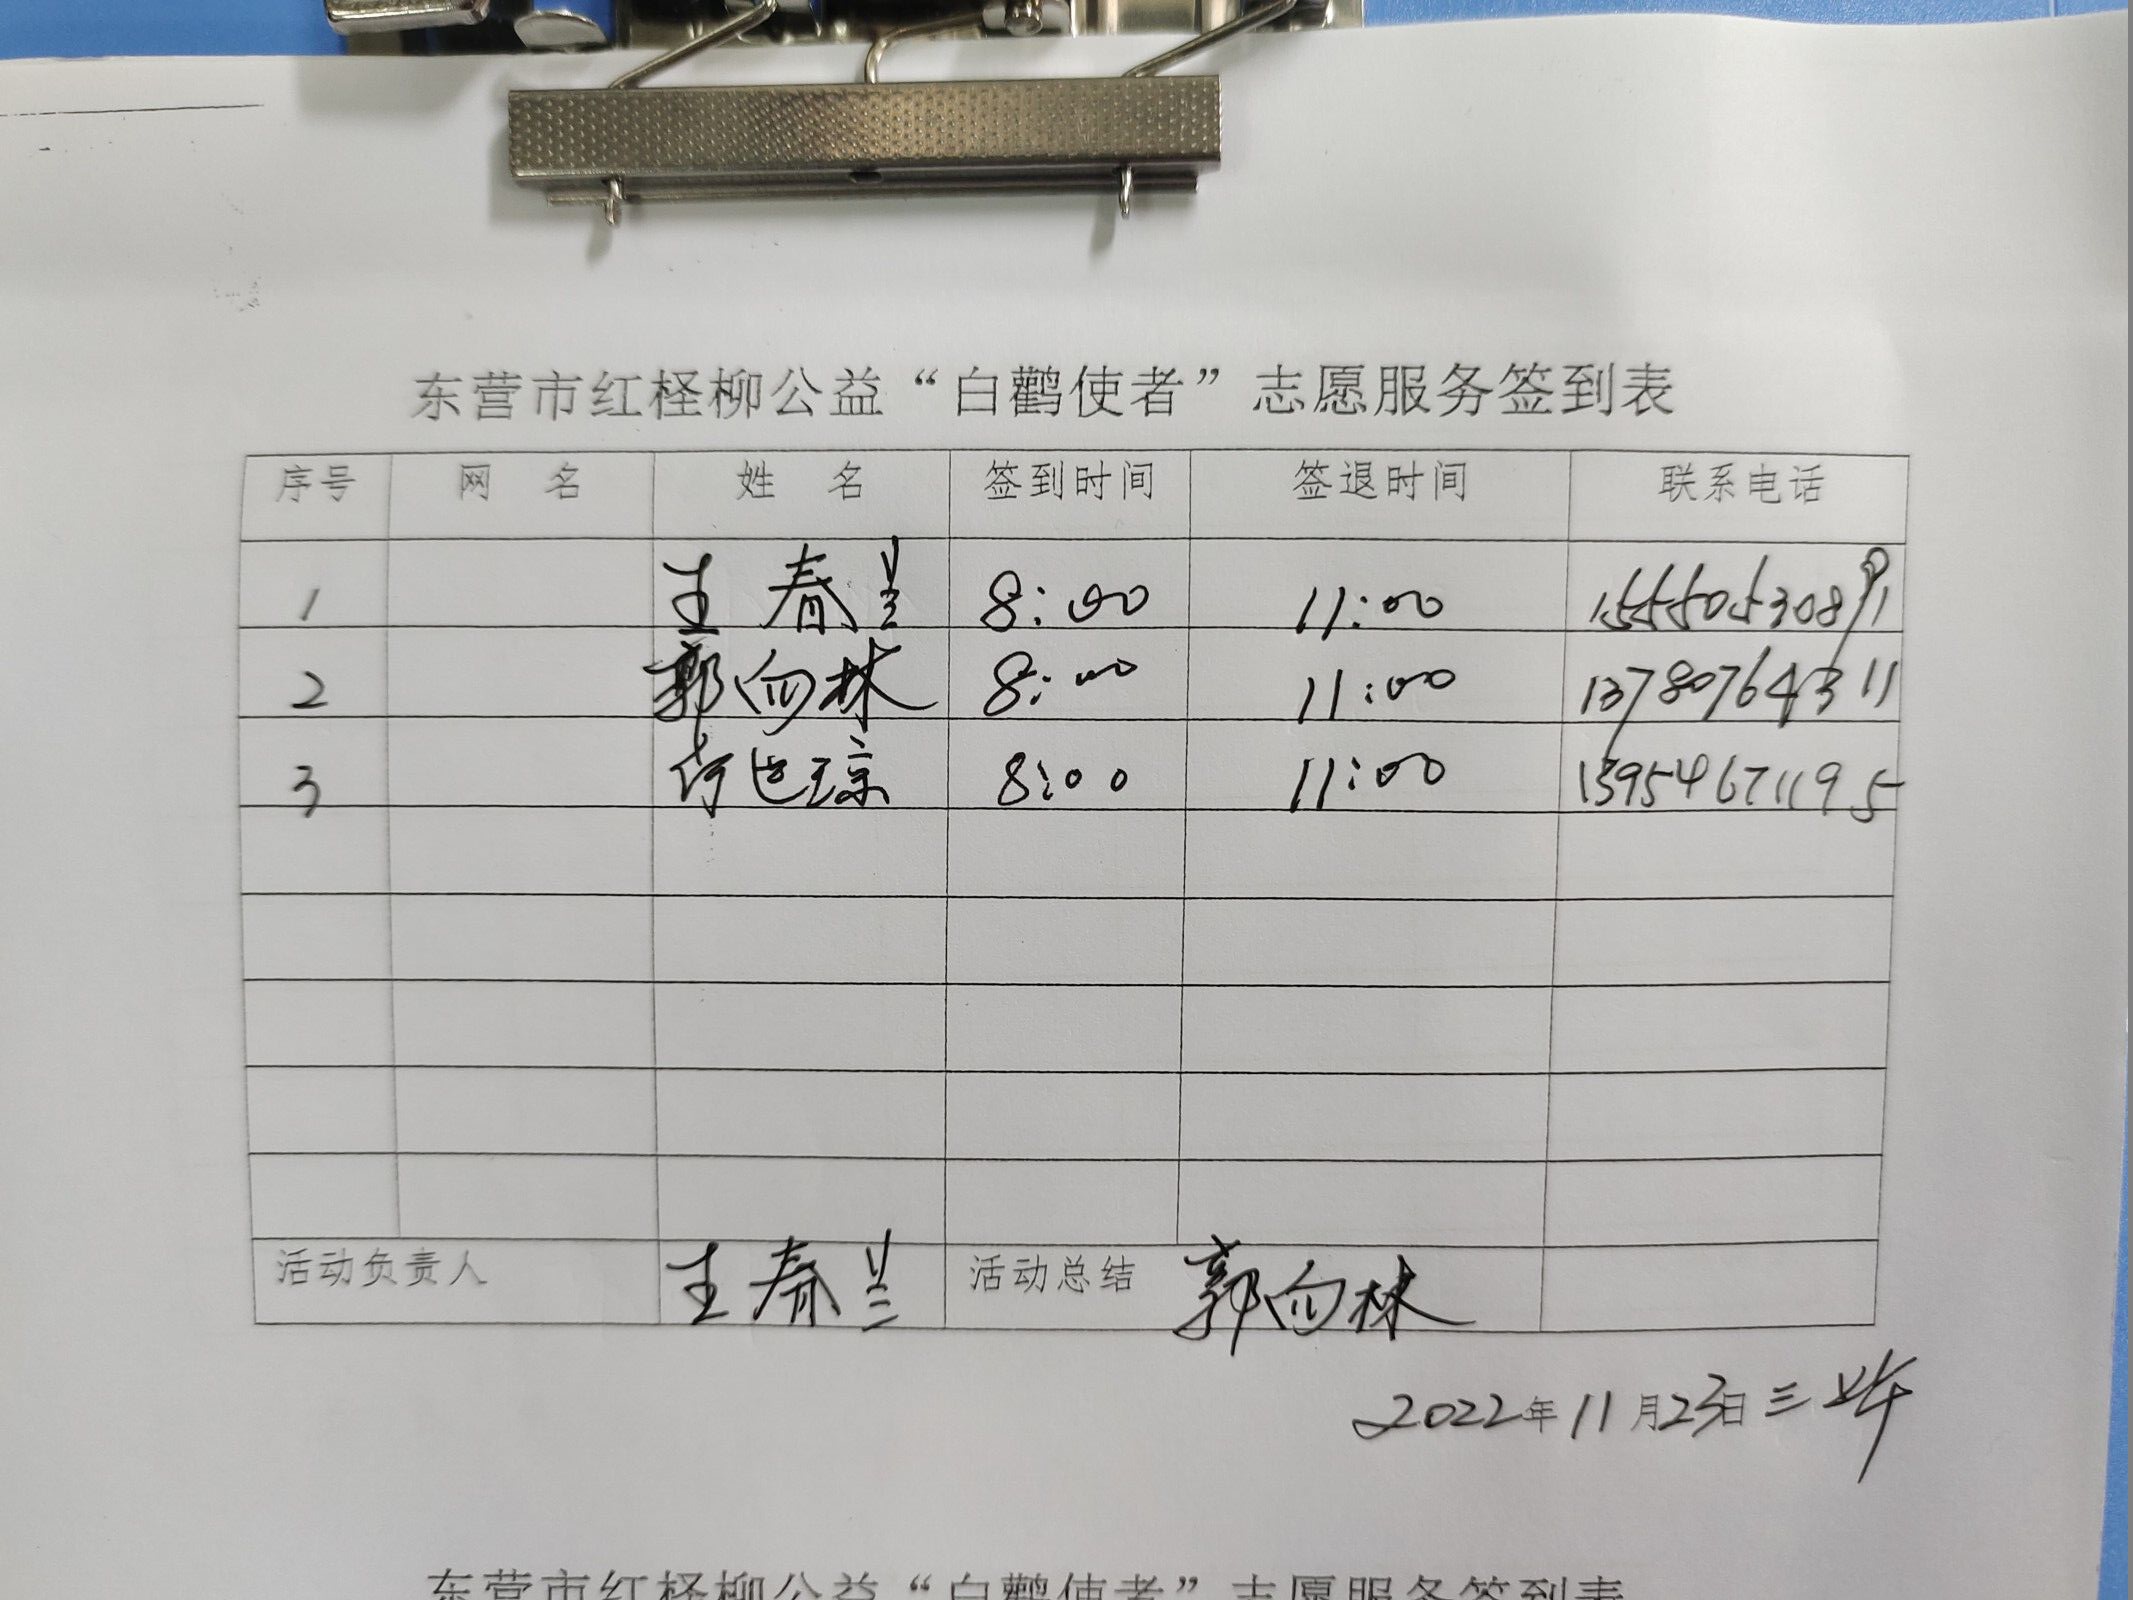 东营市红柽柳公益“白鹳使者”志愿服务签到表
序号 网 名 姓 名 签到时间 签退时间 联系电话
1 王春兰 8:00 11:00 15550530891
2 郭向林 8:00 11:00 13780764311
3 8:00 11:00 13954671195
活动负责人 王春兰 活动总结 郭向林
2022年11月23日 三 上午
东营市红柽柳公益“白鹳使者”志愿服务签到表